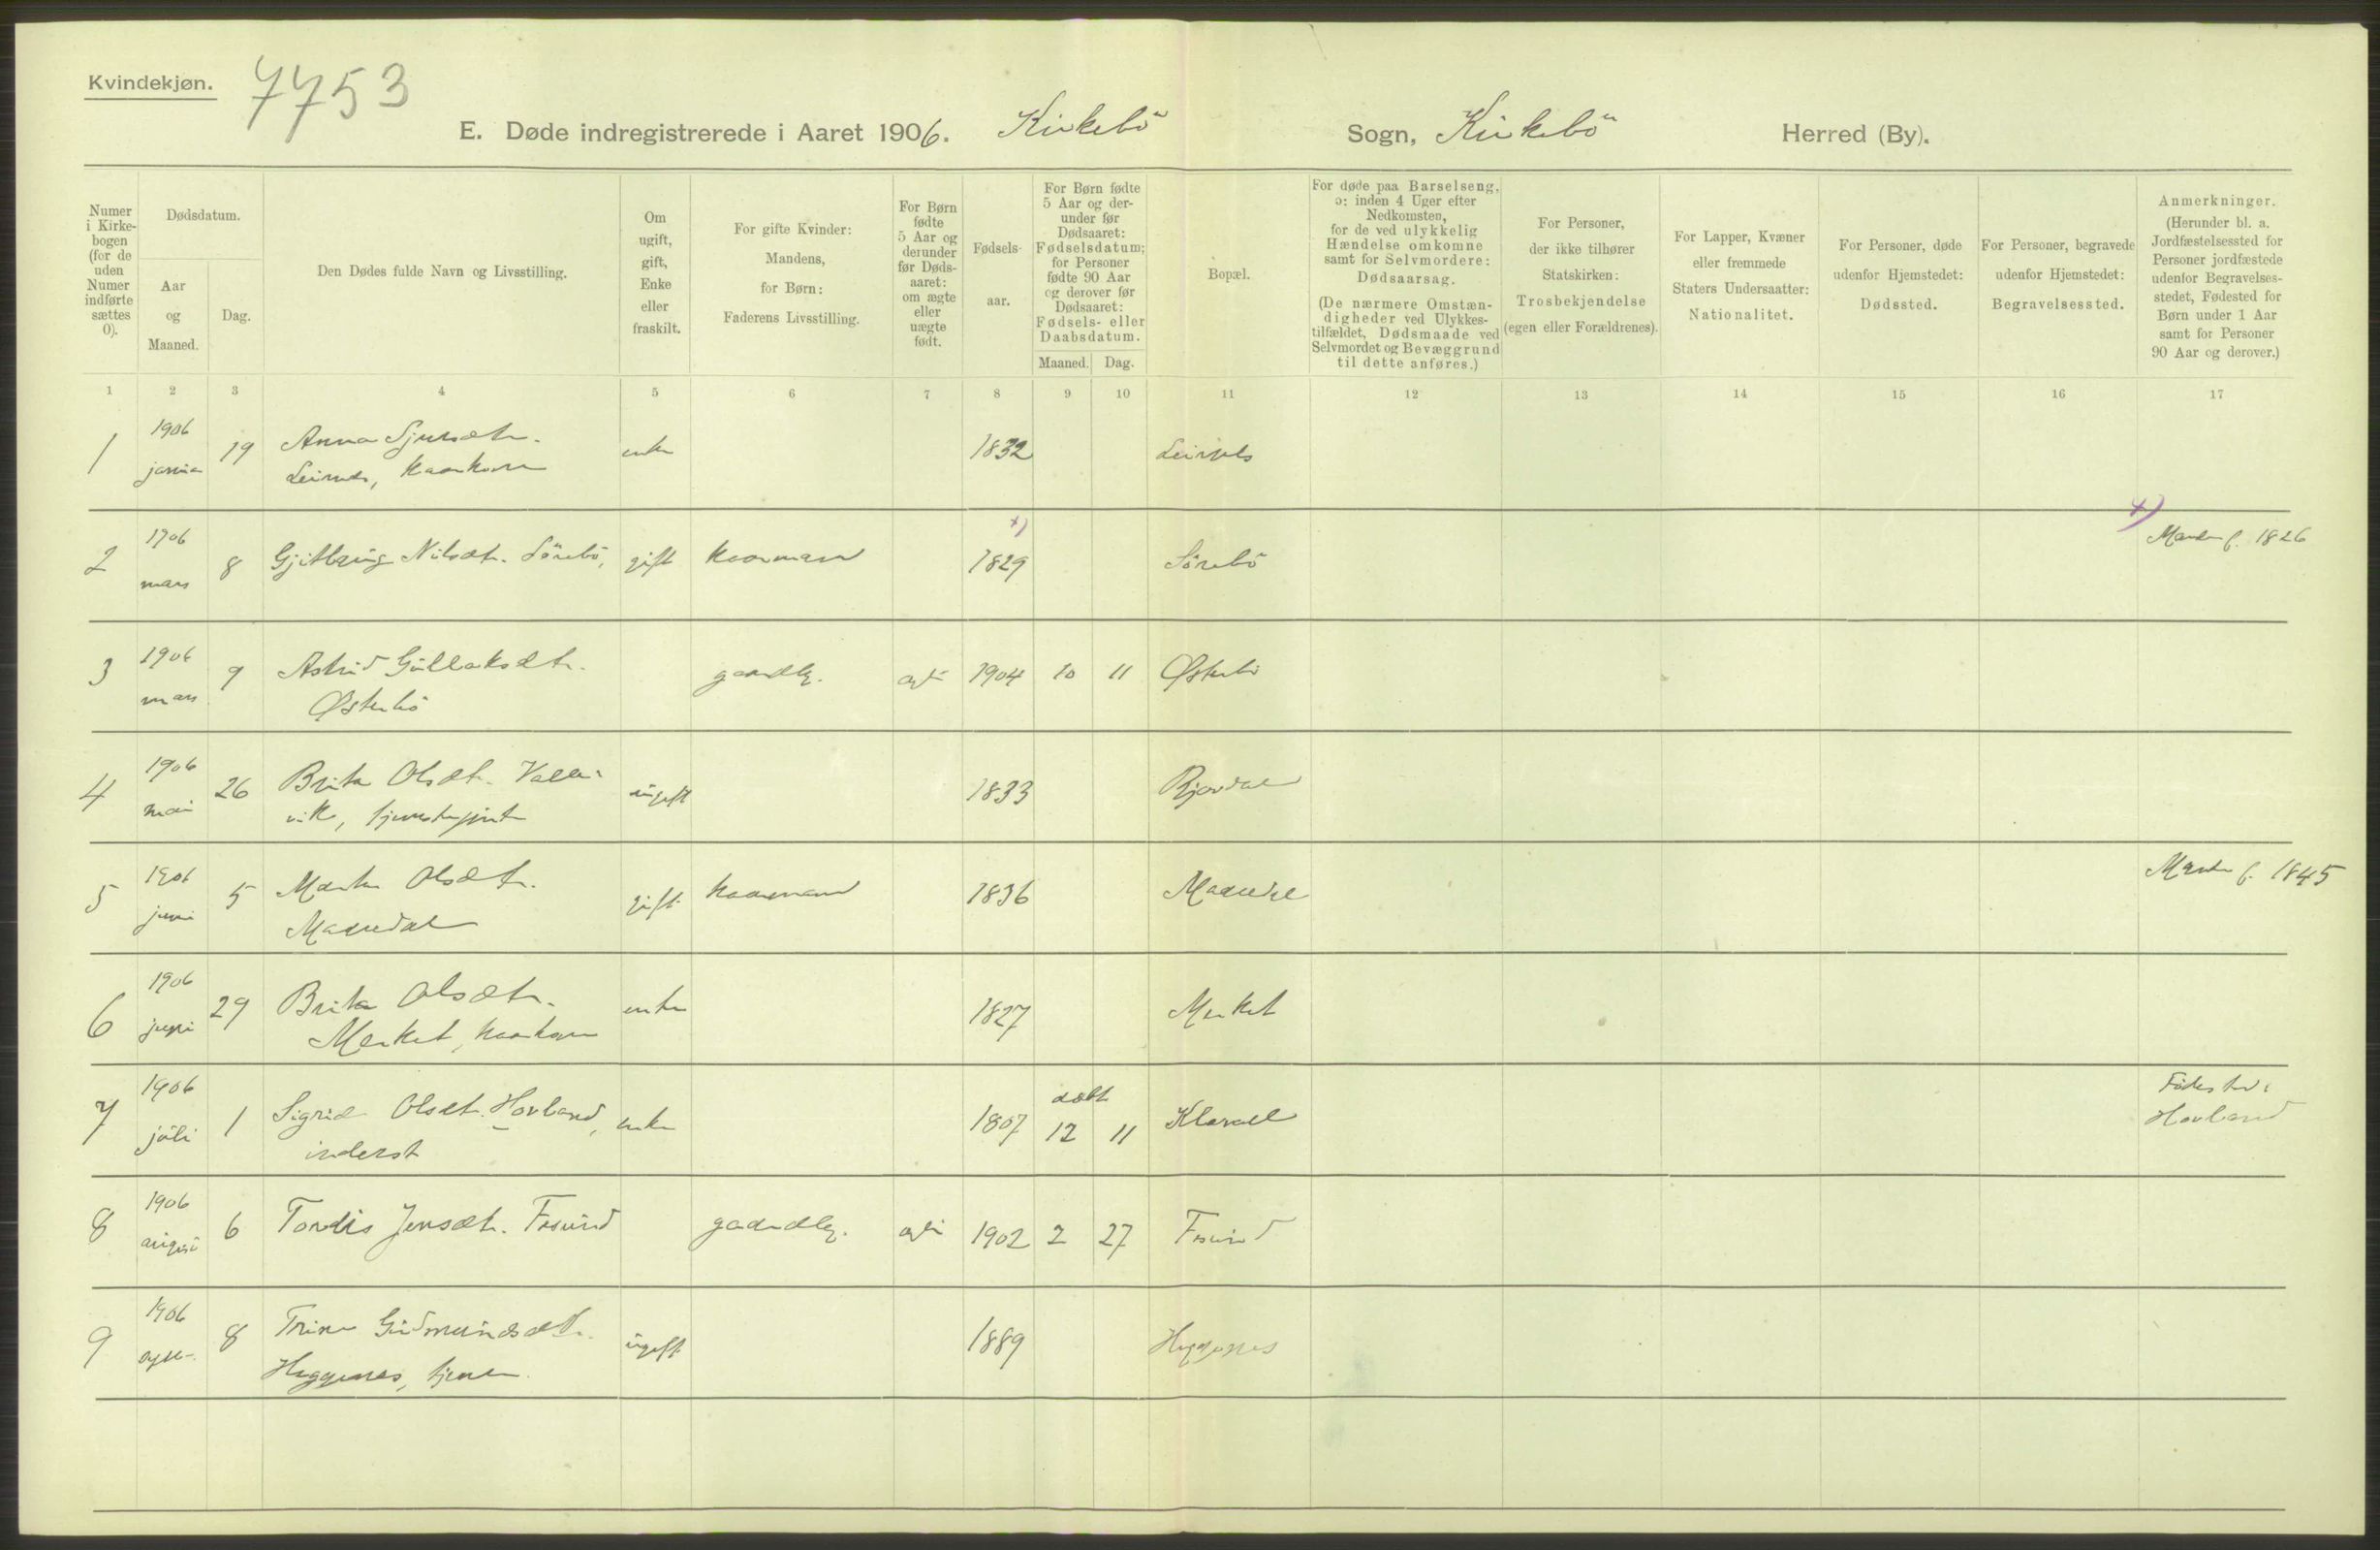 Kvindekjøn.
7753
E. Døde indregistrerede i Aaret 1906. Kirkebö Sogn, Kirkebö Herred (By).
Numer i Kirke-bogen (for de uden Numer indførte sættes 0).
Dødsdatum.
Aar og Maaned.
Dag.
Den Dødes fulde Navn og Livsstilling.
Om ugift, gift, Enke eller fraskilt.
For gifte Kvinder: Mandens, for Børn: Faderens Livsstilling.
For Børn fødte 5 Aar og derunder før Døds-aaret: om ægte eller uægte født.
Fødsels-aar.
For Børn fødte 5 Aar og der-under før Dødsaaret: Fødselsdatum; for Personer fødte 90 Aar og derover før Dødsaaret: Fødsels- eller Daabsdatum.
Maaned. Dag.
Bopæl.
For døde paa Barselseng, ɔ: inden 4 Uger efter Nedkomsten, for de ved ulykkelig Hændelse omkomne samt for Selvmordere: Dødsaarsag.
(De nærmere Omstæn-digheder ved Ulykkes-tilfældet, Dødsmaade ved Selvmordet og Bevæggrund til dette anføres.)
For Personer, der ikke tilhører Statskirken: Trosbekjendelse (egen eller Forældrenes).
For Lapper, Kvæner eller fremmede Staters Undersaatter: Nationalitet.
For Personer, døde udenfor Hjemstedet: Dødssted.
For Personer, begravede udenfor Hjemstedet: Begravelsessted.
Anmerkninger. (Herunder bl. a. Jordfæstelsessted for Personer jordfæstede udenfor Begravelses-stedet, Fødested for Børn under 1 Aar samt for Personer 90 Aar og derover.)
1 2 3 4 5 6 7 8 9 10 11 12 13 14 15 16 17
1 1906 19 Anna enke 1832
2 1906 mars 8 Nilsdtr. Sörebö, gift kaarmand x) 1829 Sörebö x) Manden f. 1826
3 1906 mars 9 Astrid Gullaksdtr. gaardbr. 1904 10 11 Østerbö
Østerbö
4 1906 mai 26 Brita Olsdtr. ugift 1833
5 1906 juni 5 Olsdtr. gift kaarmand 1836 Manden f. 1845
6 1906 juni 29 Brita Olsdtr. enke 1827 Merket
Merket, kaarkone
7 1906 juli 1 Sigrid Olsdtr. Hovland, enke 1807 döbt 12 11 Födested:
inderst Hovland
8 1906 august 6 Tordis Jensdtr. gaardbr. 1902 2 27
9 1906 8 Trine Gudmundsdtr. ugift 1889 Heggenes
Heggenes,